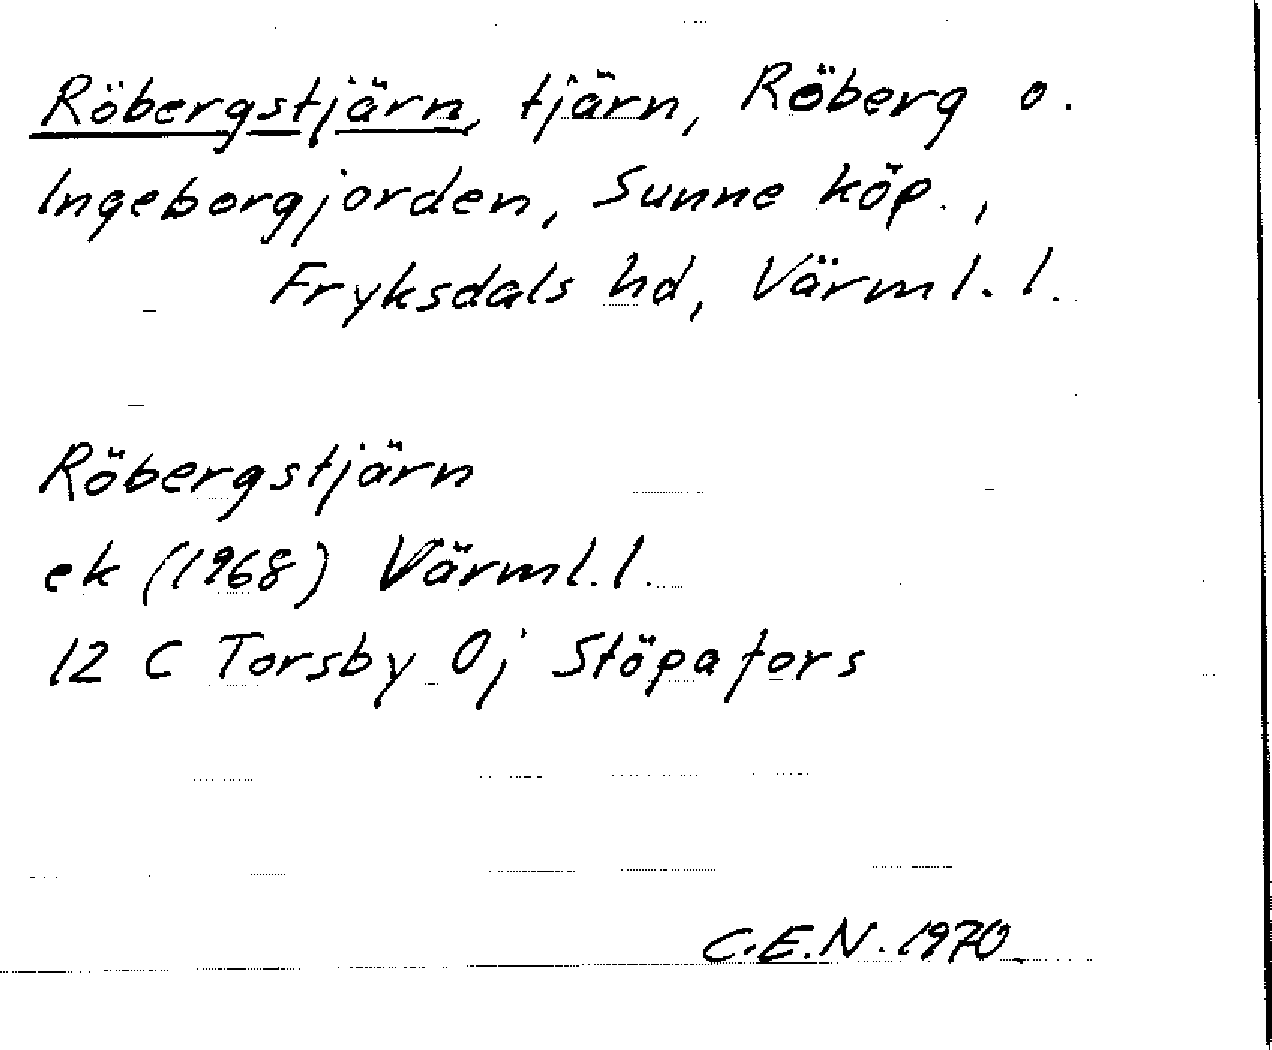 Röbergstjärn, tjärn, Röberg o.
Ingeborgjorden, Sunne köp.,
Fryksdals hd, Värml. l.
Röbergstjärn
ek (1968) Värml. l.
12 C Torsby 0j Stöpafors
C.E.N. 1970